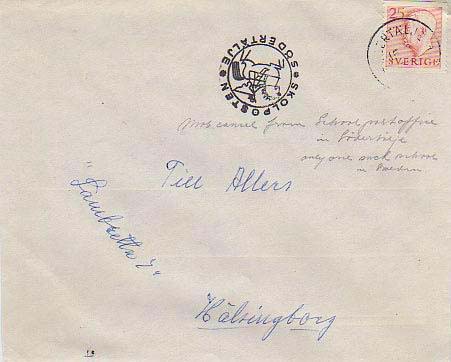 25
SVERIGE
SÖDERTÄLJE
SKOLPOSTEN SÖDERTÄLJE
cancel from School postoffice
in Södertälje
only one such school
in Sweden
Till Allers
"Lambretta
Hälsingborg